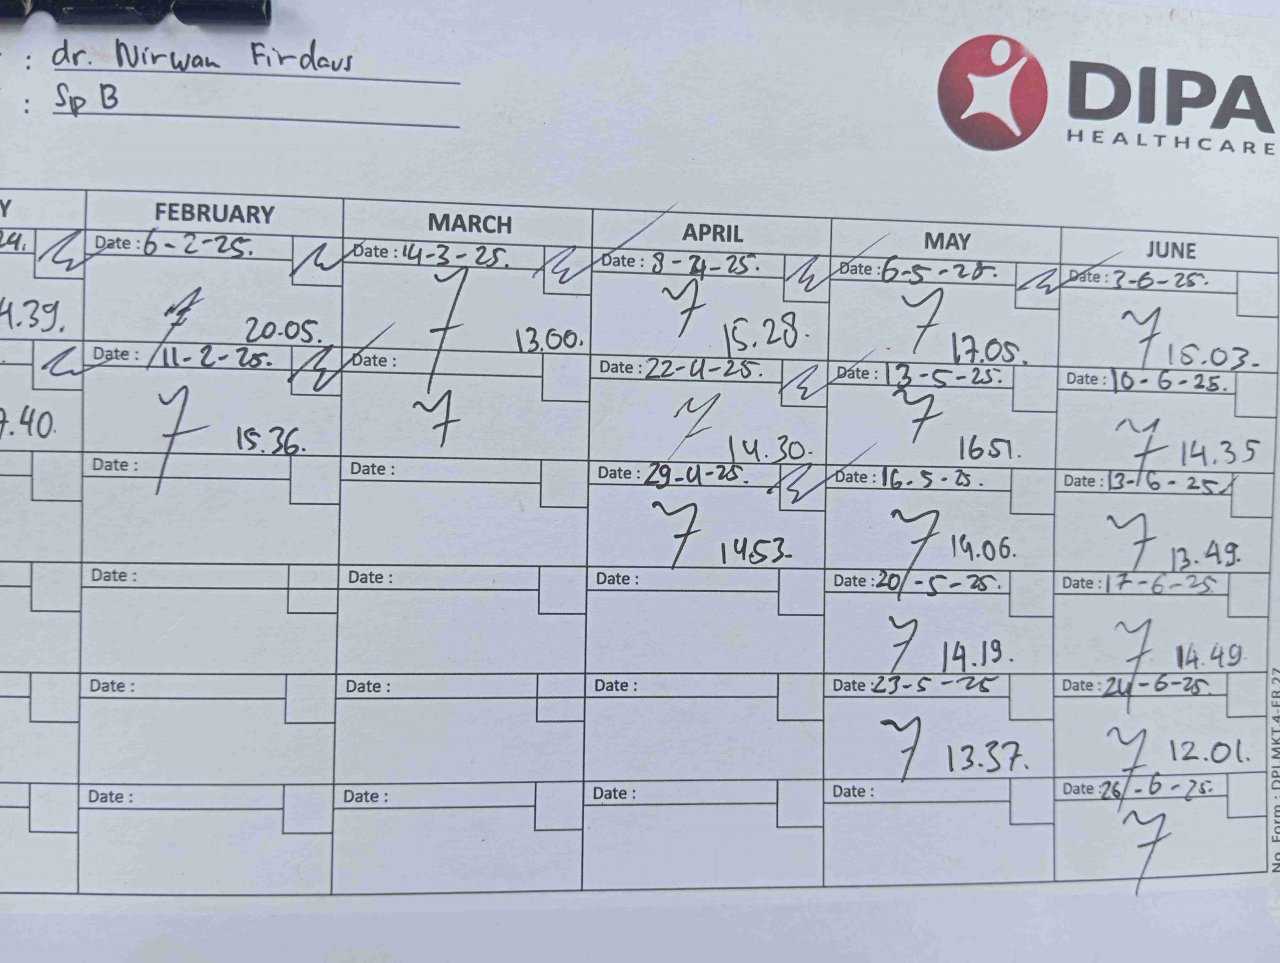 : dr. Nirwan Firdaus
: Sp B
DIPA
HEALTHCARE
Y FEBRUARY MARCH APRIL MAY JUNE
24. Date : 6-2-25. Date : 14-3-25. Date : 8-4-25. Date : 6-5-25. Date : 3-6-25.
4.39. 20.05. 13.00. 15.28. 17.05. 15.03.
Date : 11-2-25. Date : Date : 22-4-25. Date : 13-5-25. Date : 10-6-25.
7.40. 15.36. 14.30. 1651. 14.35
Date : Date : Date : 29-4-25. Date : 16-5-25. Date : 13-6-25
1453. 14.06. 13.49.
Date : Date : Date : Date : 20-5-25. Date : 17-6-25
14.19. 14.49
Date : Date : Date : Date : 23-5-25 Date : 24-6-25.
13.37. 12.01.
Date : Date : Date : Date : Date : 26-6-25.
No. Form : DPI.MKT.4-FR.27